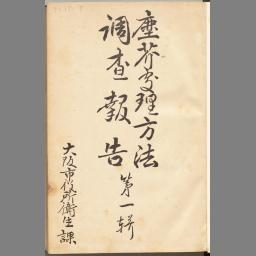 塵芥処理方法
調査報告
第一輯
大阪市役所衛生課